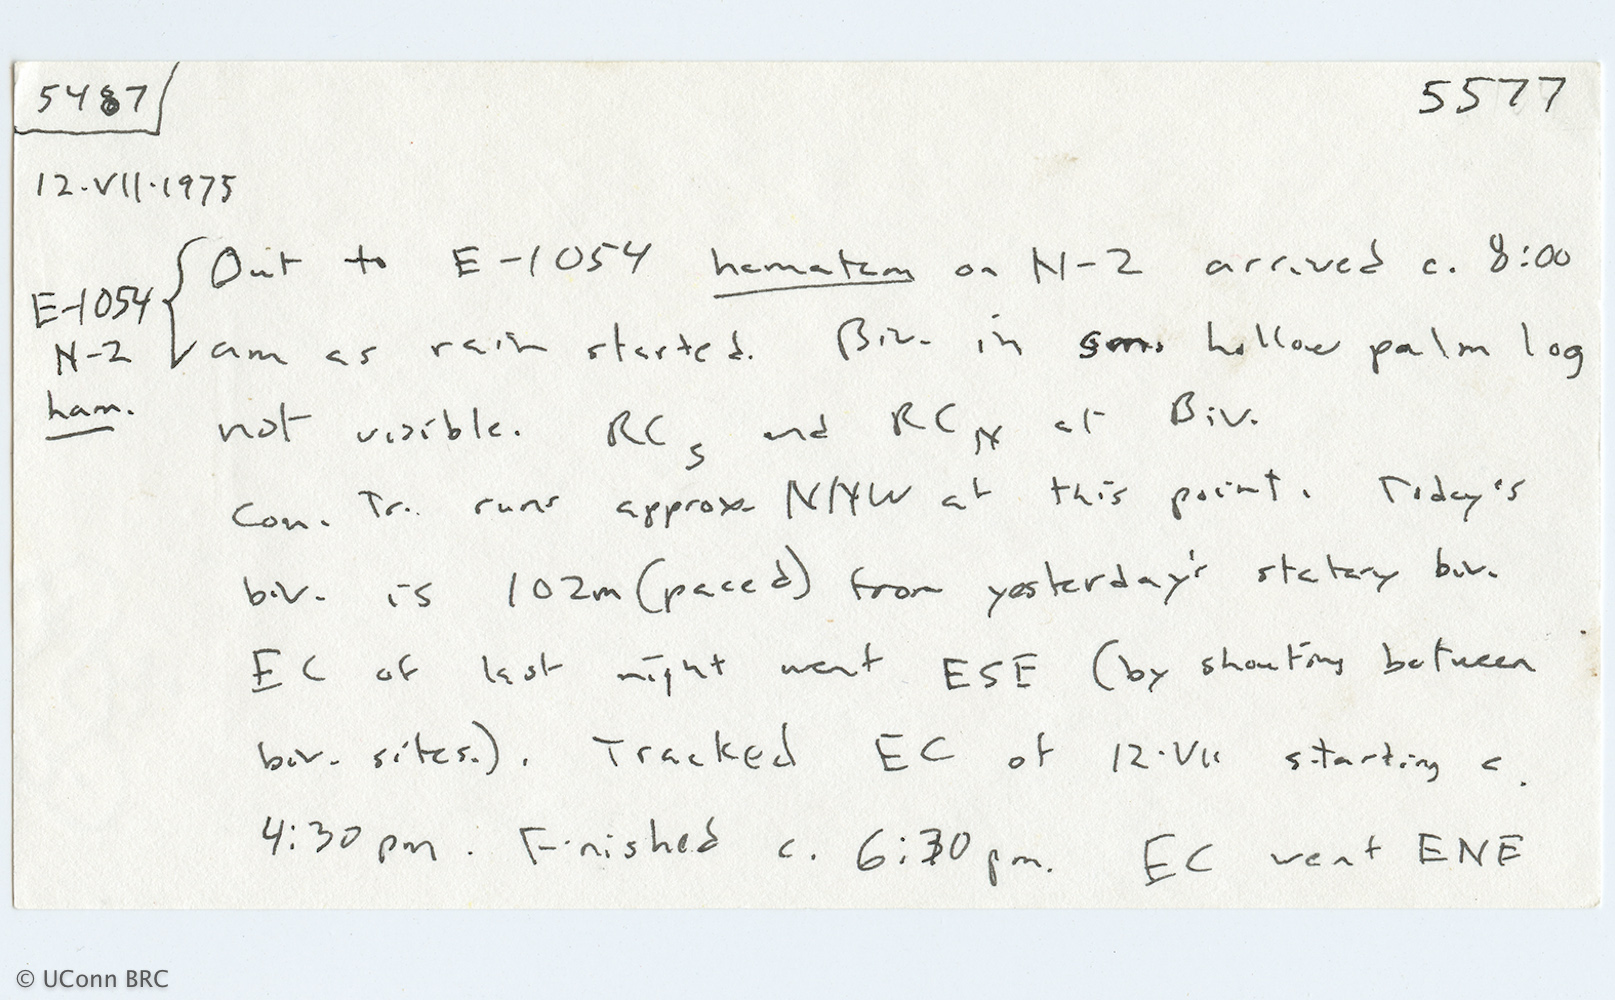 5487
5577
12.VII.1975
Out to E-1054 hamatum on N-2 arrived c. 8:00
E-1054
N-2
ham.
am as rain started. Biv. in hollow palm log
not visible. RCS and RCN at Biv.
Con. Tr. runs approx. NNW at this point. Today's
biv. is 102m (paced) from yesterday's statary biv.
EC of last night went ESE (by shouting between
biv. sites.). Tracked EC of 12.VII starting c.
4:30 pm. Finished c. 6:30 pm. EC went ENE
© UConn BRC